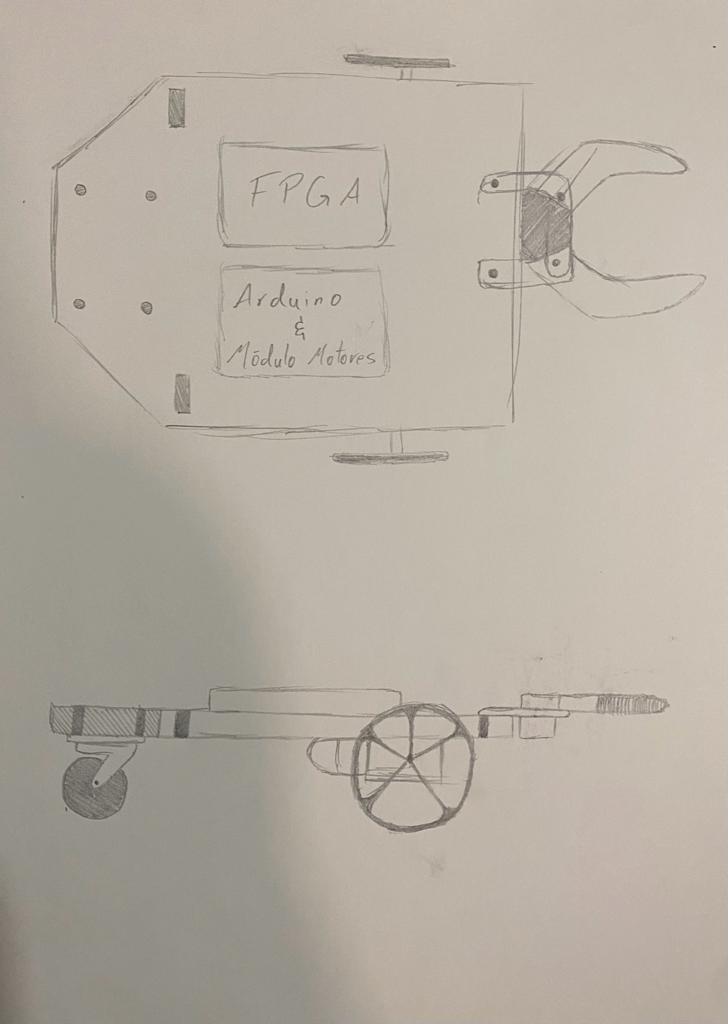 FPGA
Arduino
&
Módulo Motores